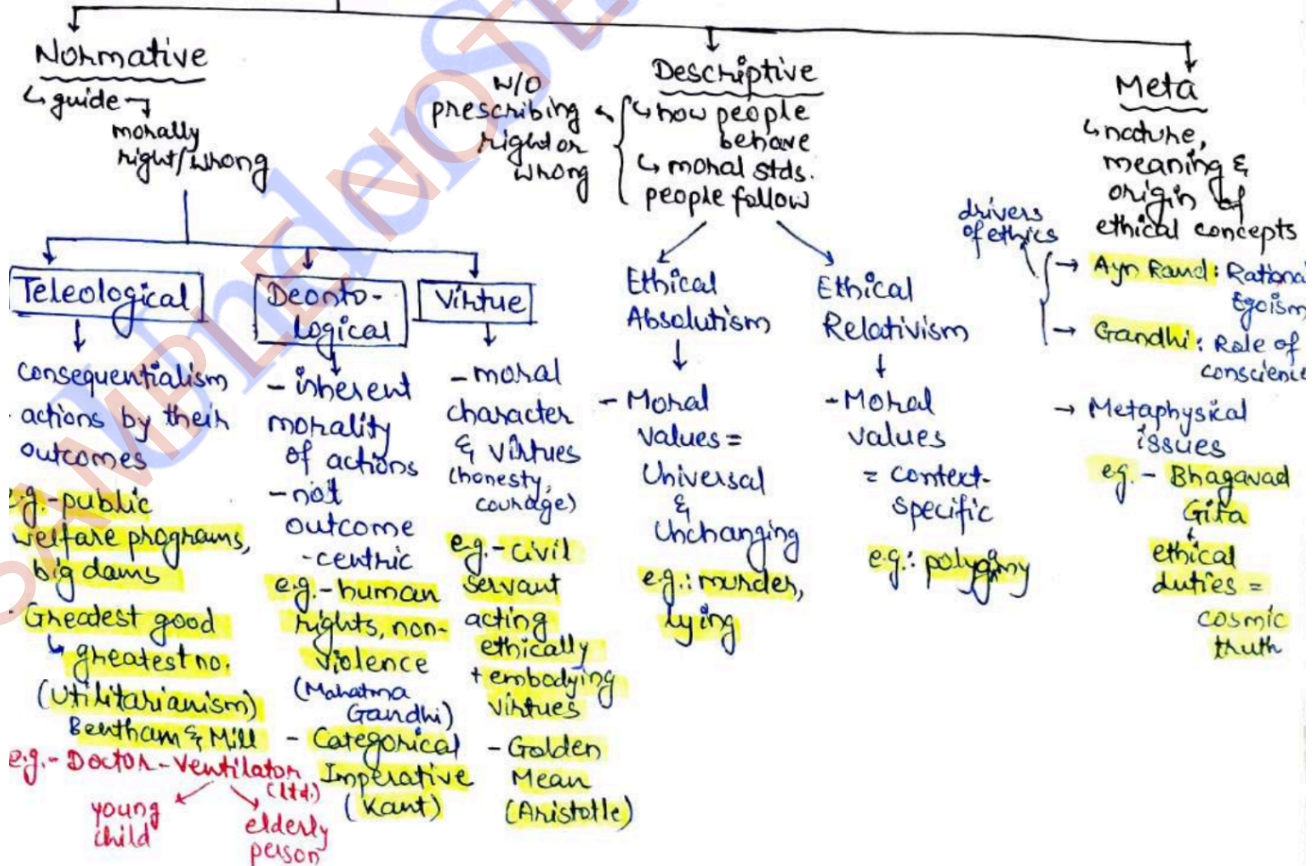 Normative
↳ guide
morally
right/wrong
Teleological
consequentialism
actions by their
outcomes
e.g.-public
welfare programs,
big dams
- Greatest good
↳ greatest no.
(Utilitarianism)
Bentham & Mill
e.g.- Doctor-Ventilator
(ltd.)
young
child
elderly
person
Deonto-
Logical
- inherent
morality
of actions
- not
outcome
-centric
e.g.- human
rights, non-
violence
(Mahatma
Gandhi)
- Categorical
Imperative
(Kant)
Virtue
- moral
character
& virtues
(honesty,
courage)
e.g.- civil
servant
acting
ethically
+ embodying
virtues
- Golden
Mean
(Aristotle)
Descriptive
↳ how people
behave
↳ moral stds.
people follow
W/O
prescribing
right or
wrong
Ethical
Absolutism
- Moral
values =
Universal
&
Unchanging
e.g.: murder,
lying
Ethical
Relativism
- Moral
values
= context-
specific
e.g.: polygamy
Meta
↳ nature,
meaning &
origin of
ethical concepts
drivers
of ethics
→ Ayn Rand: Rational
Egoism
→ Gandhi: Role of
conscience
→ Metaphysical
issues
eg.- Bhagavad
Gita
ethical
duties =
cosmic
truth
SAMPLE NOTES